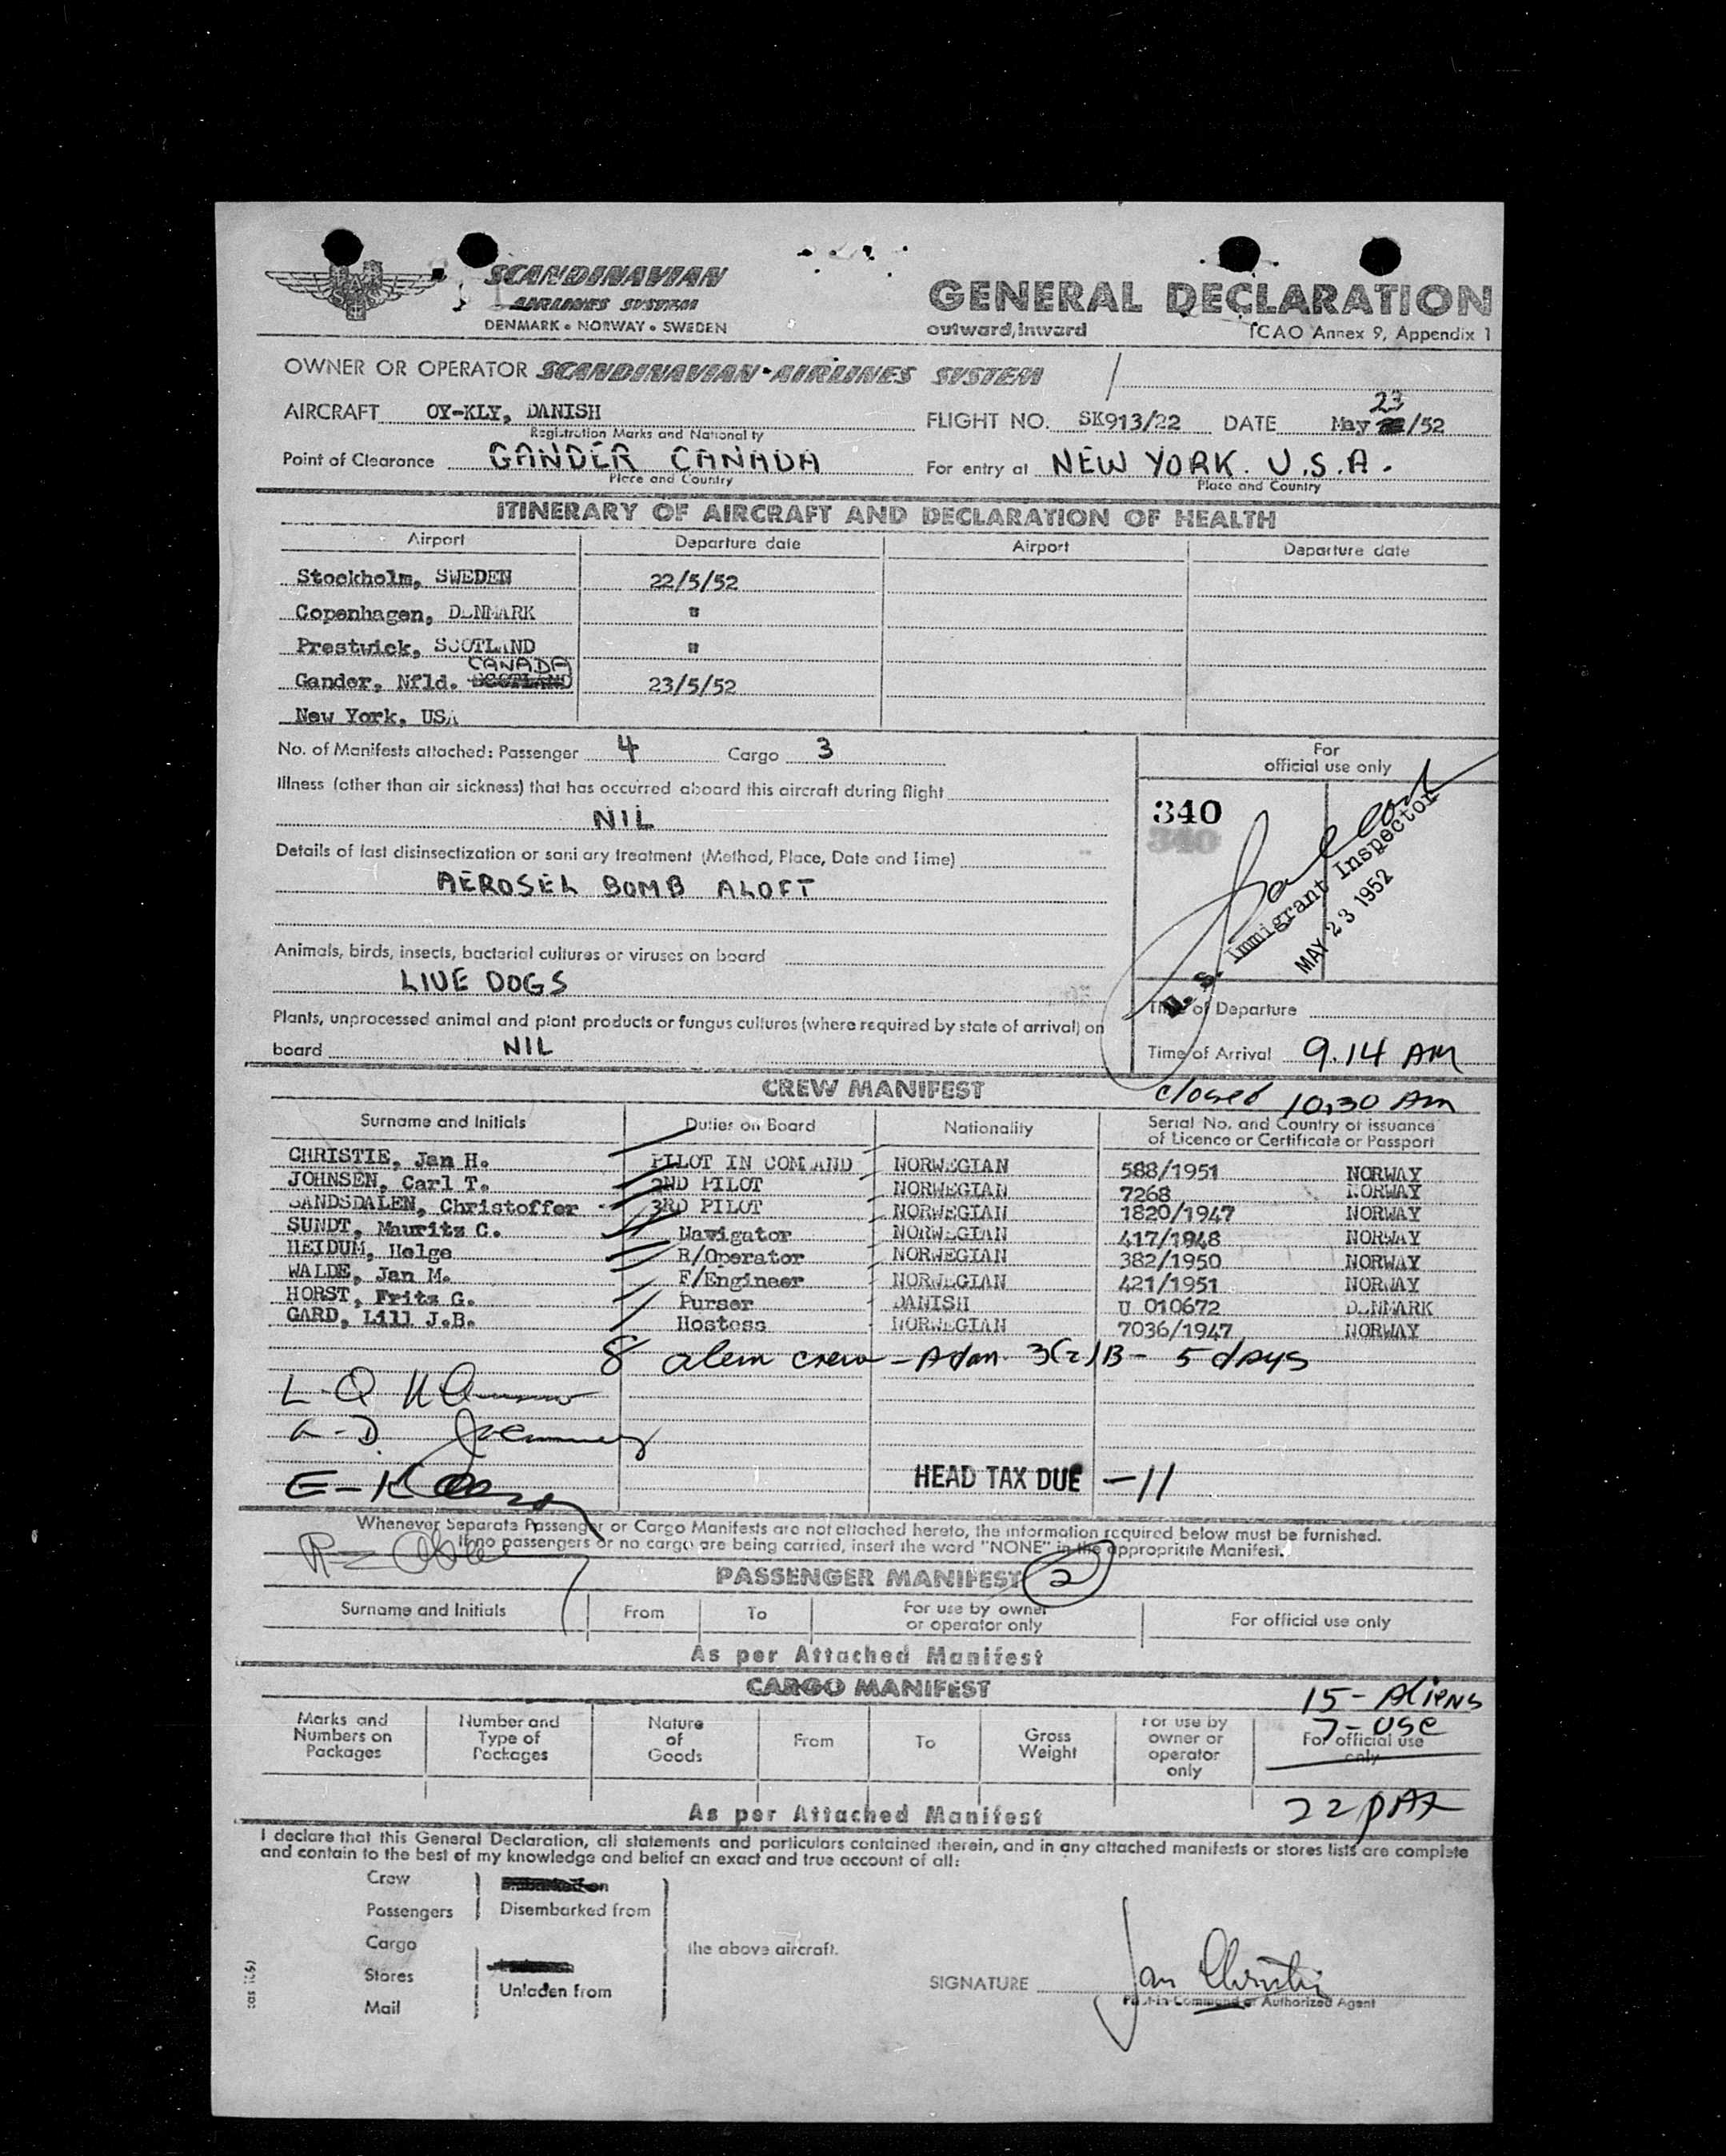 SCANDINAVIAN
AIRLINES SYSTEM
DENMARK • NORWAY • SWEDEN
GENERAL DECLARATION
outward, inward
ICAO Annex 9, Appendix 1
OWNER OR OPERATOR SCANDINAVIAN AIRLINES SYSTEM
AIRCRAFT OY-KLY, DANISH
Registration Marks and Nationality
FLIGHT NO. SK913/22 DATE May 23/52
Point of Clearance GANDER CANADA
Place and Country
For entry at NEW YORK. U.S.A.
Place and Country
ITINERARY OF AIRCRAFT AND DECLARATION OF HEALTH
Airport Departure date Airport Departure date
Stockholm, SWEDEN 22/5/52
Copenhagen, DENMARK "
Prestwick, SCOTLAND "
CANADA
Gander, Nfld. SCOTLAND 23/5/52
New York, USA
No. of Manifests attached: Passenger 4 Cargo 3
For
official use only
Illness (other than air sickness) that has occurred aboard this aircraft during flight
NIL
340
340
Details of last disinsectization or sanitary treatment (Method, Place, Date and Time)
AEROSEL BOMB ALOFT
U. S. Immigrant Inspector
MAY 23 1952
Animals, birds, insects, bacterial cultures or viruses on board
LIVE DOGS
Time of Departure
Plants, unprocessed animal and plant products or fungus cultures (where required by state of arrival) on
board NIL
Time of Arrival 9.14 AM
closed 10.30 AM
CREW MANIFEST
Surname and Initials Duties on Board Nationality Serial No. and Country of issuance
of Licence or Certificate or Passport
CHRISTIE, Jan H. PILOT IN COMMAND NORWEGIAN 588/1951 NORWAY
JOHNSEN, Carl T. 2ND PILOT NORWEGIAN 7268 NORWAY
SANDSDALEN, Christoffer 3RD PILOT NORWEGIAN 1820/1947 NORWAY
SUNDT, Mauritz C. Navigator NORWEGIAN 417/1948 NORWAY
HEIDUM, Helge R/Operator NORWEGIAN 382/1950 NORWAY
WALDE, Jan M. F/Engineer NORWEGIAN 421/1951 NORWAY
HORST, Fritz G. Purser DANISH U 010672 DENMARK
GARD, Lill J.B. Hostess NORWEGIAN 7036/1947 NORWAY
8 alien crew - Adm. 3(2)B - 5 days
HEAD TAX DUE -11
Whenever Separate Passenger or Cargo Manifests are not attached hereto, the information required below must be furnished.
If no passengers or no cargo are being carried, insert the word "NONE" in the appropriate Manifest.
PASSENGER MANIFEST 2
Surname and Initials From To For use by owner
or operator only For official use only
As per Attached Manifest
CARGO MANIFEST
15 - Aliens
7 - USC
Marks and
Numbers on
Packages
Number and
Type of
Packages
Nature
of
Goods
From
To
Gross
Weight
For use by
owner or
operator
only
For official use
only
22 pax
As per Attached Manifest
I declare that this General Declaration, all statements and particulars contained therein, and in any attached manifests or stores lists are complete
and contain to the best of my knowledge and belief an exact and true account of all:
Crew
Passengers Disembarked from
Cargo the above aircraft.
Stores
Unladen from
Mail
SIGNATURE Jan Christie
Pilot-in-Command or Authorized Agent